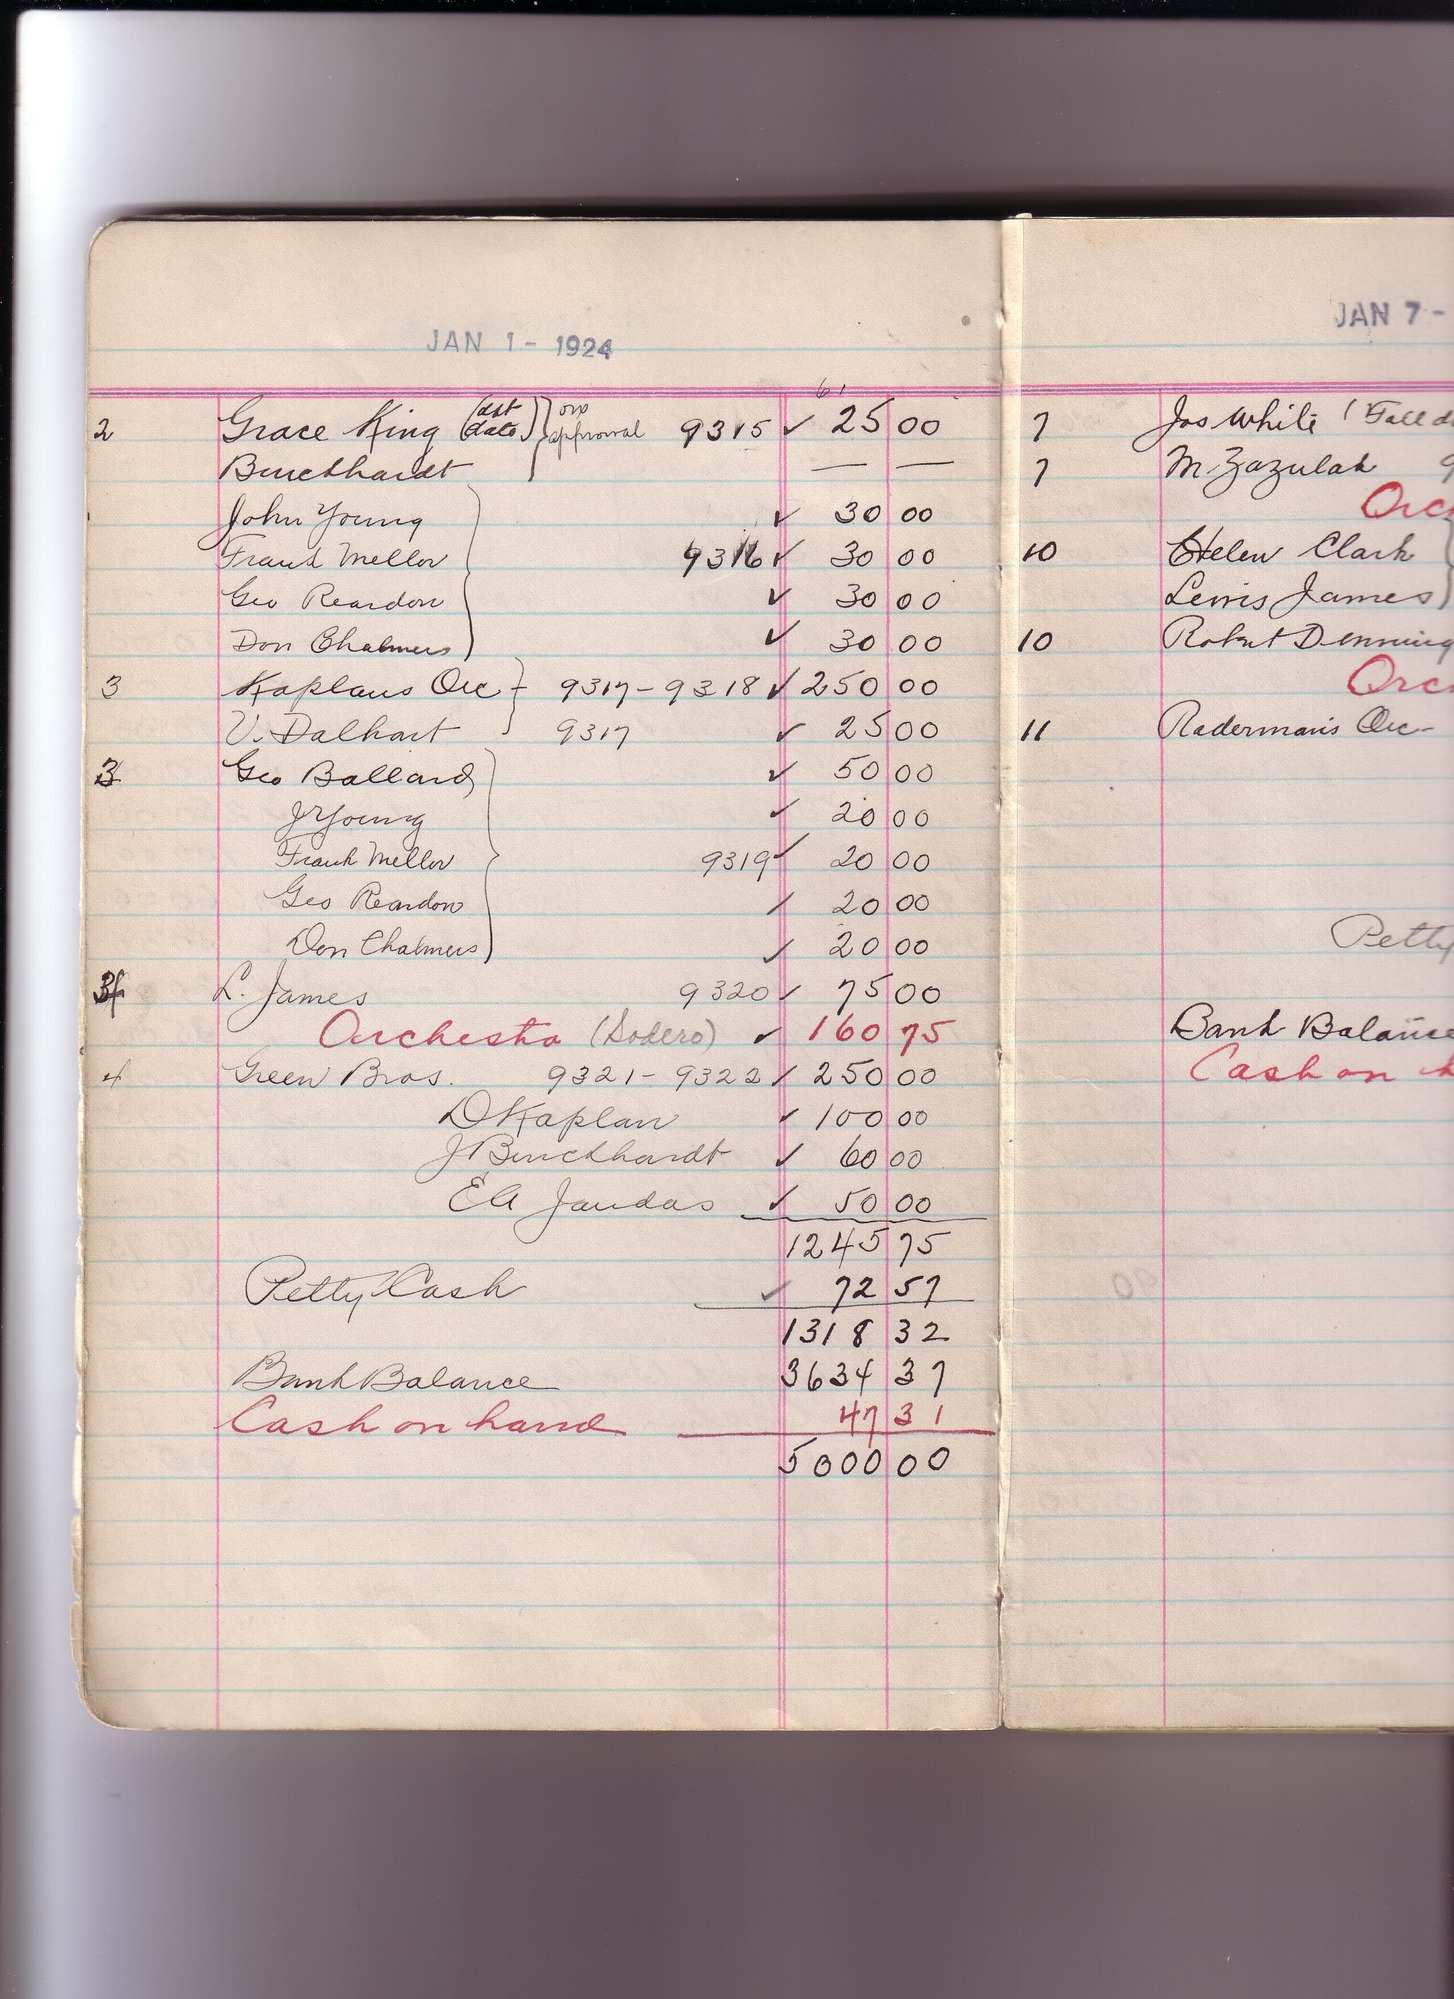 JAN 1 - 1924
61
2 Grace King (1st date) } on approval 9315 ✓ 25 00
Burckhardt — —
John Young ✓ 30 00
Frank Mellor 9316 ✓ 30 00
Geo Reardon ✓ 30 00
Don Chalmers ✓ 30 00
3 Kaplans Orc } 9317-9318 ✓ 250 00
V. Dalhart 9317 ✓ 25 00
3 Geo Ballard ✓ 50 00
J Young ✓ 20 00
Frank Mellor 9319 ✓ 20 00
Geo Reardon ✓ 20 00
Don Chalmers ✓ 20 00
L. James 9320 ✓ 75 00
Orchestra (Sodero) ✓ 160 75
4 Green Bros. 9321-9322 ✓ 250 00
D Kaplan ✓ 100 00
J Burckhardt ✓ 60 00
EA Jaudas ✓ 50 00
1245 75
Petty Cash ✓ 72 57
1318 32
Bank Balance 3634 37
Cash on hand 47 31
5000 00
JAN 7 -
7 Jos White (
7 M Zazulak 9
Orc
10 Helen Clark
Lewis James
10 Robert Denning
Orc
11 Raderman's Orc-
Petty
Bank Balance
Cash on h